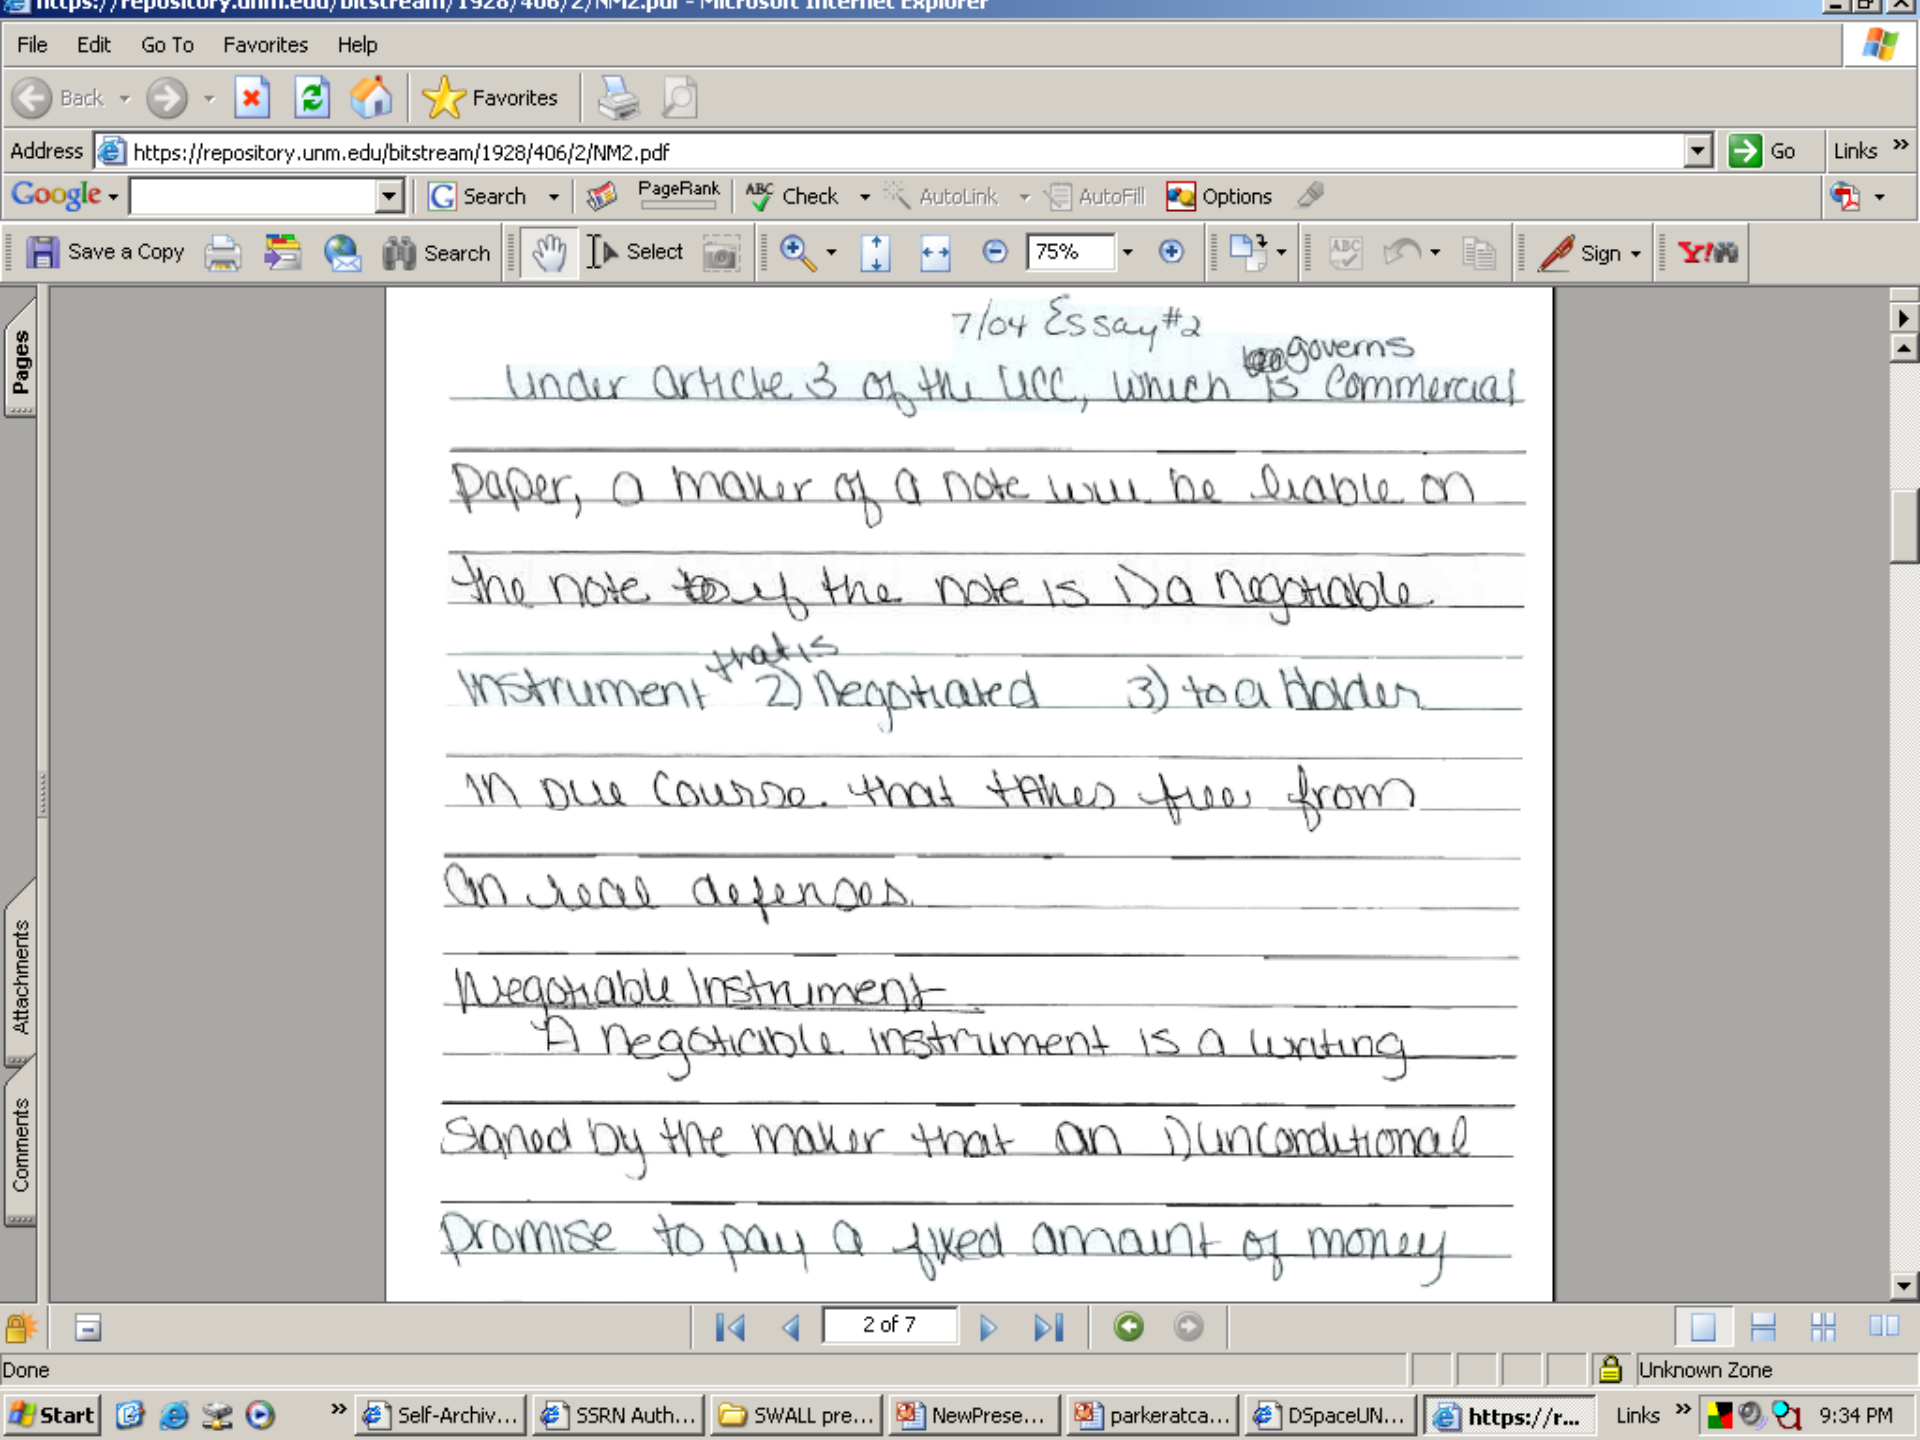 https://repository.unm.edu/bitstream/1928/406/2/NM2.pdf - Microsoft Internet Explorer
File Edit Go To Favorites Help
Back Favorites
Address https://repository.unm.edu/bitstream/1928/406/2/NM2.pdf Go Links »
Google Search PageRank ABC Check AutoLink AutoFill Options
Save a Copy Search Select 75% ABC Sign Y!
Pages
Attachments
Comments
7/04 Essay #2
governs
Under Article 3 of the UCC, which is Commercial
paper, a maker of a note will be liable on
the note if the note is 1) a negotiable
that is
instrument 2) negotiated 3) to a Holder
in Due Course. that takes free from
an real defenses.
Negotiable Instrument
A negotiable instrument is a writing
signed by the maker that an 1) unconditional
promise to pay a fixed amount of money
2 of 7
Done Unknown Zone
Start » Self-Archiv... SSRN Auth... SWALL pre... NewPrese... parkeratca... DSpaceUN... https://r... Links » 9:34 PM